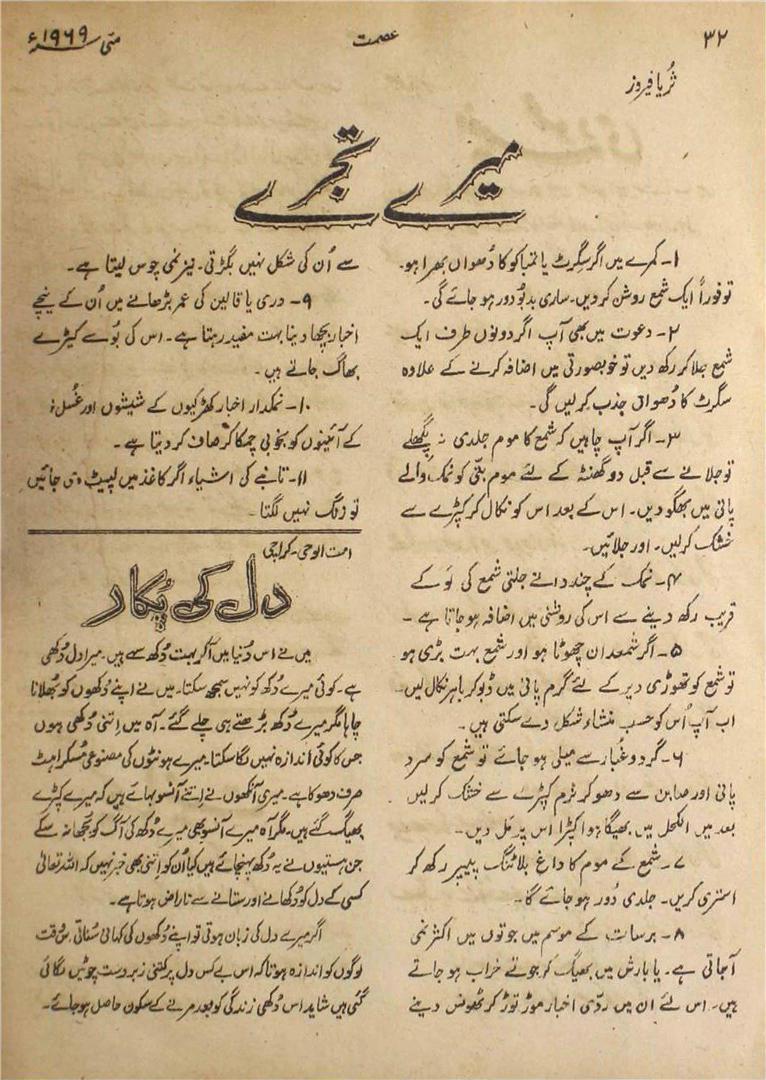 ۳۲
عصمت
مئی ۱۹۶۹ء
ثُریا فیروز
میرے تجربے
۱- کمرے میں اگر سگرٹ یا تمباکو کا دُھواں بھرا ہو۔
تو فوراً ایک شمع روشن کر دیں۔ ساری بدبُو دور ہو جائے گی۔
۲- دعوت میں بھی آپ اگر دونوں طرف ایک
شمع جلا کر رکھ دیں تو خوبصورتی میں اضافہ کرنے کے علاوہ
سگرٹ کا دُھواں جذب کر لیں گی۔
۳- اگر آپ چاہیں کہ شمع کا موم جلدی نہ پگھلے
تو جلانے سے قبل دو گھنٹہ کے لئے موم بتّی کو نمک والے
پانی میں بھگو دیں۔ اس کے بعد اس کو نکال کر کپڑے سے
خشک کر لیں۔ اور جلائیں۔
۴- نمک کے چند دانے جلتی شمع کی لَو کے
قریب رکھ دینے سے اس کی روشنی میں اضافہ ہو جاتا ہے۔
۵- اگر شمعدان چھوٹا ہو اور شمع بہت بڑی ہو
تو شمع کو تھوڑی دیر کے لئے گرم پانی میں ڈبو کر باہر نکال لیں
اب آپ اُس کو حسب منشاء شکل دے سکتی ہیں۔
۶- گرد و غبار سے میلی ہو جائے تو شمع کو سرد
پانی اور صابن سے دھو کر نرم کپڑے سے خشک کر لیں
بعد میں الکحل میں بھیگا ہوا کپڑا اس پر مَل دیں۔
۷- شمع کے موم کا داغ بلاٹنگ پیپر رکھ کر
استری کریں۔ جلدی دُور ہو جائے گا۔
۸- برسات کے موسم میں جوتوں میں اکثر نمی
آ جاتی ہے۔ یا بارش میں بھیگ کر جوتے خراب ہو جاتے
ہیں۔ اس لئے ان میں ردّی اخبار موڑ توڑ کر ٹھونس دینے
سے اُن کی شکل نہیں بگڑتی۔ نیز نمی چوس لیتا ہے۔
۹- دری یا قالین کی عمر بڑھانے میں اُن کے نیچے
اخبار بچھا دینا بہت مفید رہتا ہے۔ اس کی بُو سے کیڑے
بھاگ جاتے ہیں۔
۱۰- نمکدار اخبار کھڑکیوں کے شیشوں اور غُسل‌خانہ
کے آئینوں کو بخوبی چمکا کر صاف کر دیتا ہے۔
۱۱- تانبے کی اشیاء اگر کاغذ میں لپیٹ دی جائیں
تو زنگ نہیں لگتا۔
امت الوحی۔ کراچی
دل کی پُکار
میں نے اس دُنیا میں آ کر بہت دُکھ سہے ہیں۔ میرا دل دُکھی
ہے۔ کوئی میرے دُکھ کو نہیں سمجھ سکتا۔ میں نے اپنے دُکھوں کو بُھلانا
چاہا مگر میرے دُکھ بڑھتے ہی چلے گئے۔ آہ میں اِتنی دُکھی ہوں
جس کا کوئی اندازہ نہیں لگا سکتا۔ میرے ہونٹوں کی مصنوعی مُسکراہٹ
صرف دھوکا ہے۔ میری آنکھوں نے اِتنے آنسو بہائے ہیں کہ میرے کپڑے
بھیگ گئے ہیں۔ مگر آہ میرے آنسو بھی میرے دُکھ کی آگ کو بُجھا نہ سکے
جن ہستیوں نے یہ دُکھ پہنچائے ہیں کیا اُن کو اتنی بھی خبر نہیں کہ اللہ تعالیٰ
کسی کے دل کو دُکھانے اور ستانے سے ناراض ہوتا ہے۔
اگر میرے دل کی زبان ہوتی تو اپنے دُکھوں کی کہانی سُناتی اس وقت
لوگوں کو اندازہ ہوتا کہ اس بے کس دل پر کتنی زبردست چوٹیں لگائی
گئی ہیں شاید اس دُکھی زندگی کو بعد مرنے کے سکون حاصل ہو جائے۔